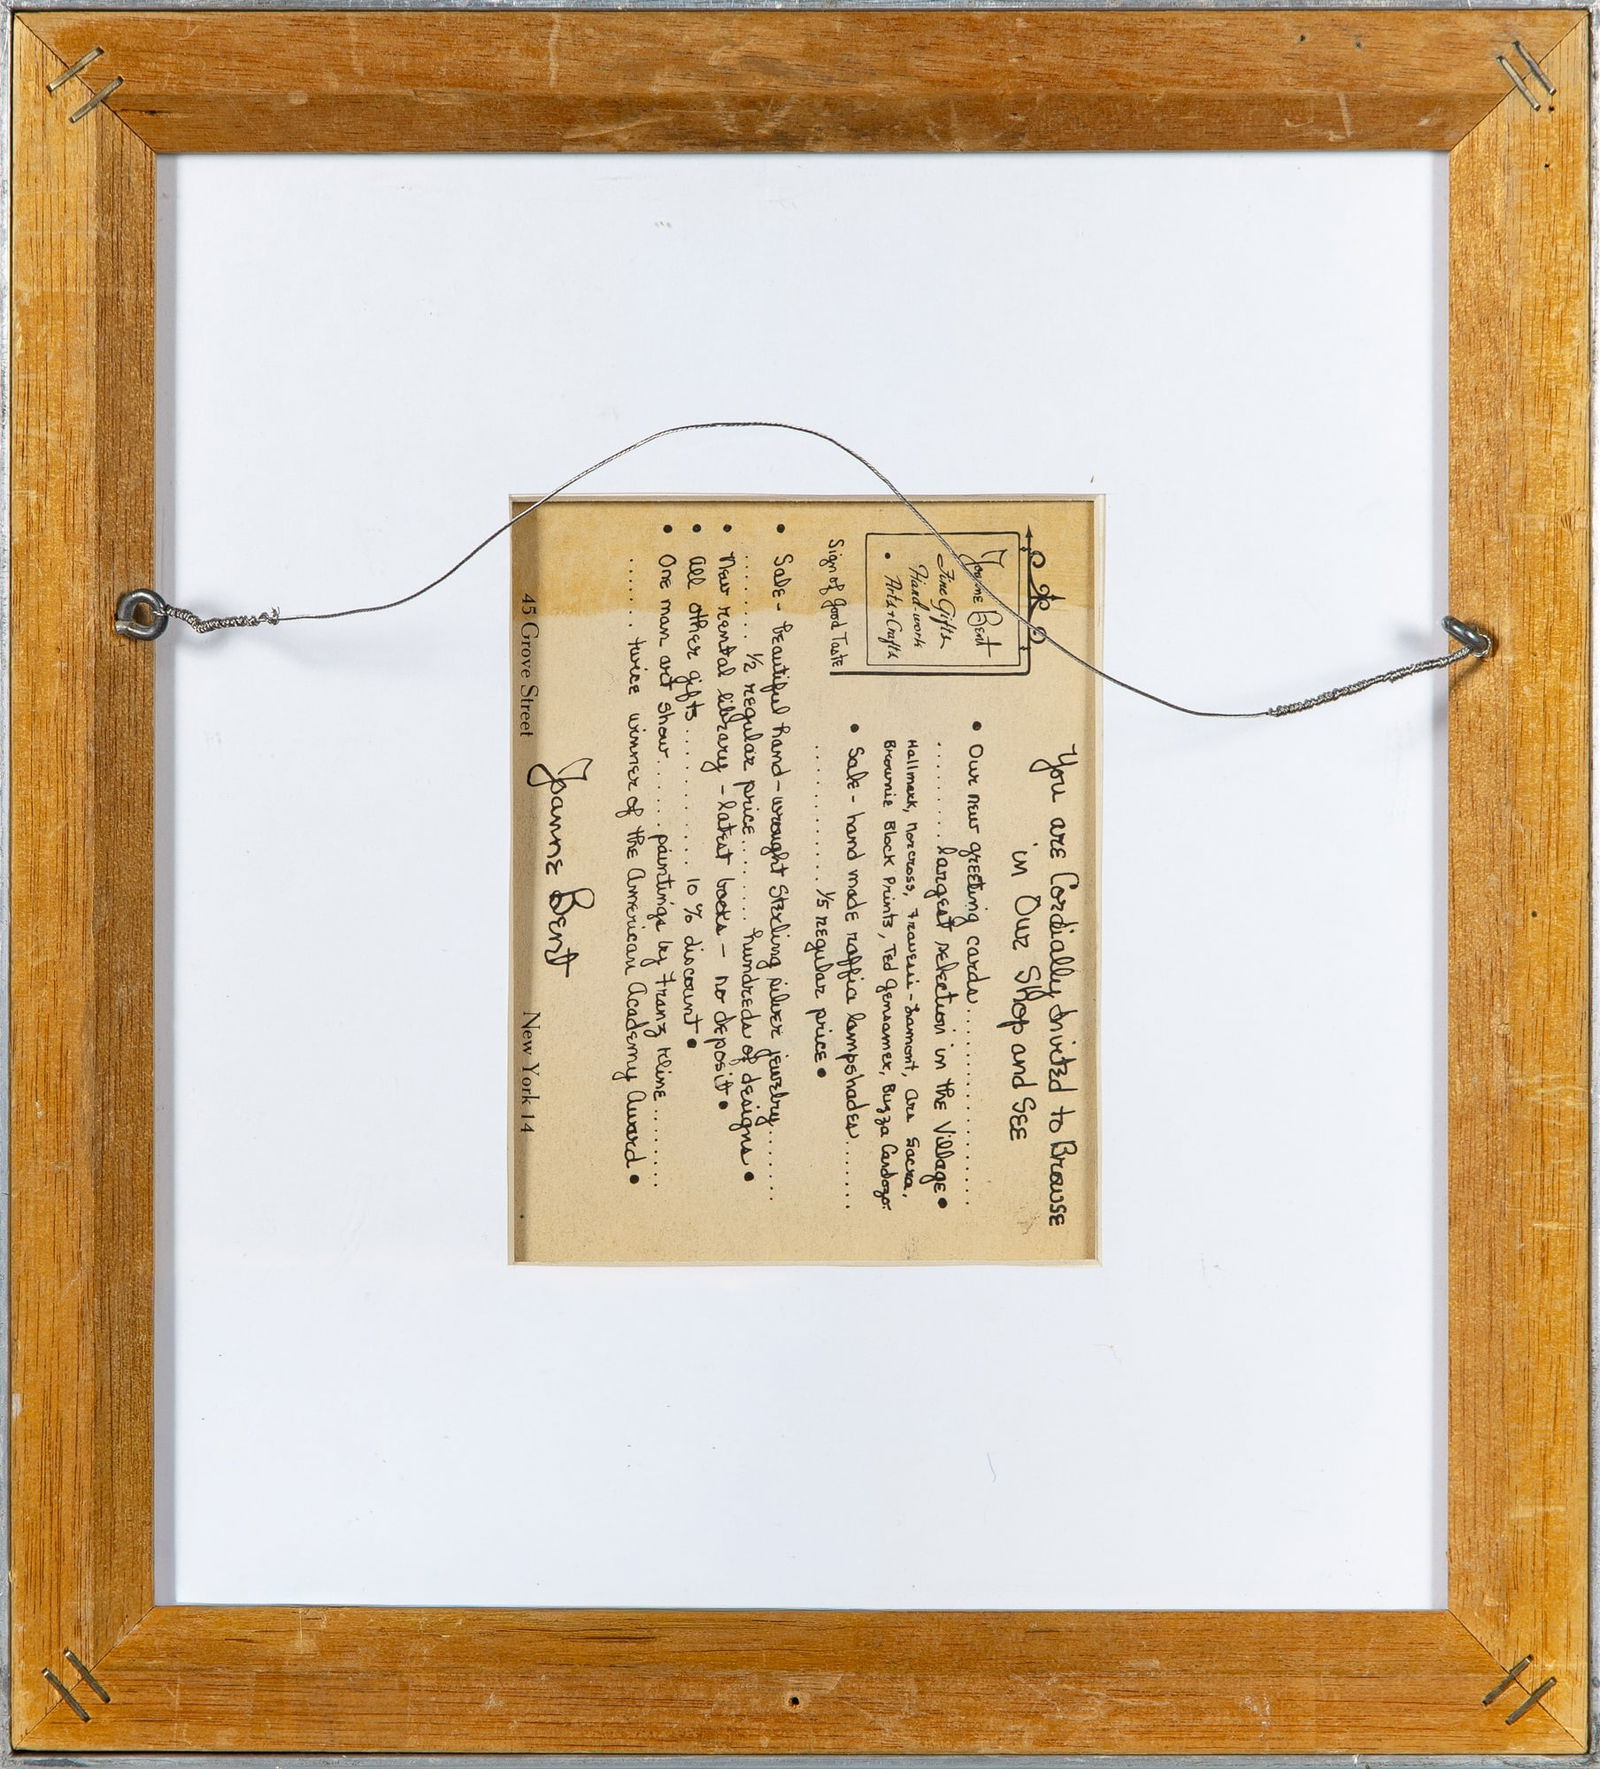 You are Cordially Invited to Browse
in Our Shop and See
Joanne Bent
Fine Gifts
Hand-work
• Arts + Crafts
Sign of Good Taste
• Our new greeting cards ............
......... largest selection in the Village •
Hallmark, Norcross, Travesi-Lamont, Ars Sacra,
Brownie Block Prints, Ted Gensamer, Buzza Cardozo.
• Sale - hand made raffia lampshades ......
............ 1/5 regular price •
• Sale - beautiful hand-wrought Sterling silver jewelry ......
....... 1/2 regular price ........ hundreds of designs •
• New rental library - latest books - no deposit •
• All other gifts ............ 10 % discount •
• One man art show ...... paintings by Franz Kline ........
...... twice winner of the American Academy Award •
Joanne Bent
45 Grove Street New York 14